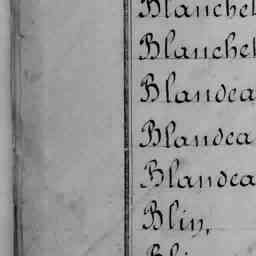 Blanchet
Blanchet
Blandea
Blandea
Blandea
Blin,